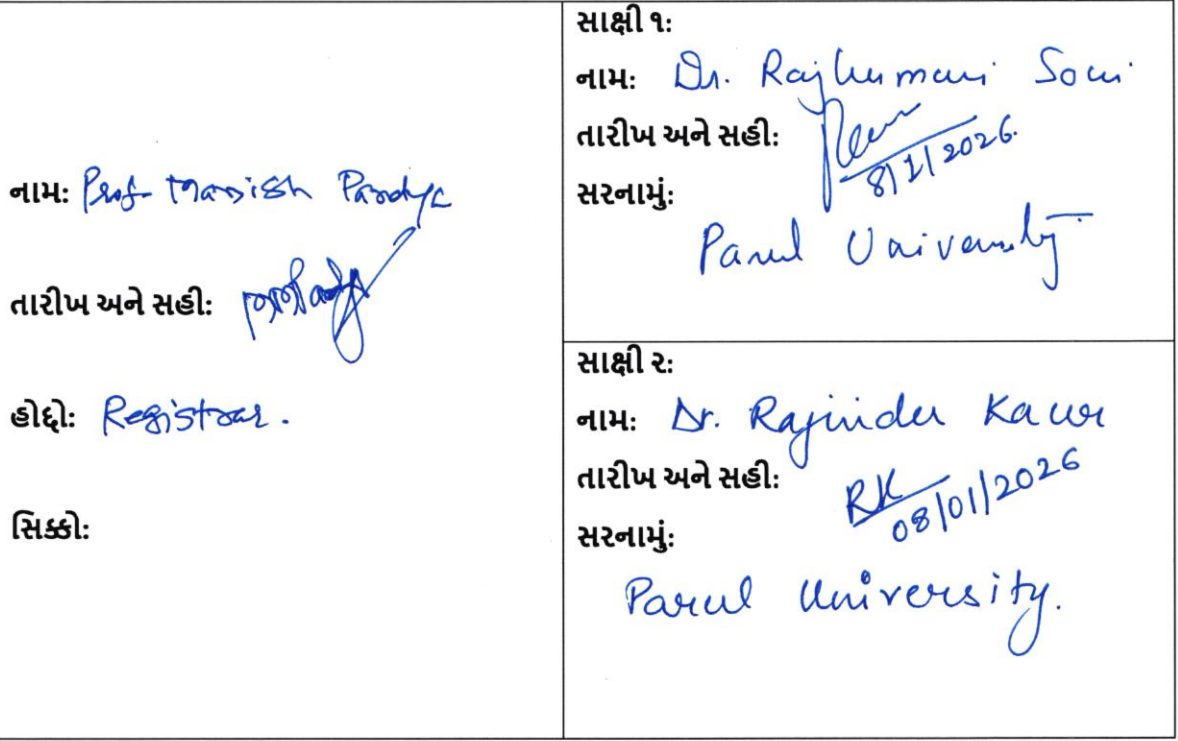 નામ: Prof. Manish Pandya
તારીખ અને સહી:
હોદ્દો: Registrar.
સિક્કો:
સાક્ષી ૧:
નામ: Dr. Rajkumari Soni
તારીખ અને સહી:
8/1/2026.
સરનામું:
Parul University
સાક્ષી ૨:
નામ: Dr. Rajinder Kaur
તારીખ અને સહી: RK
08/01/2026
સરનામું:
Parul University.